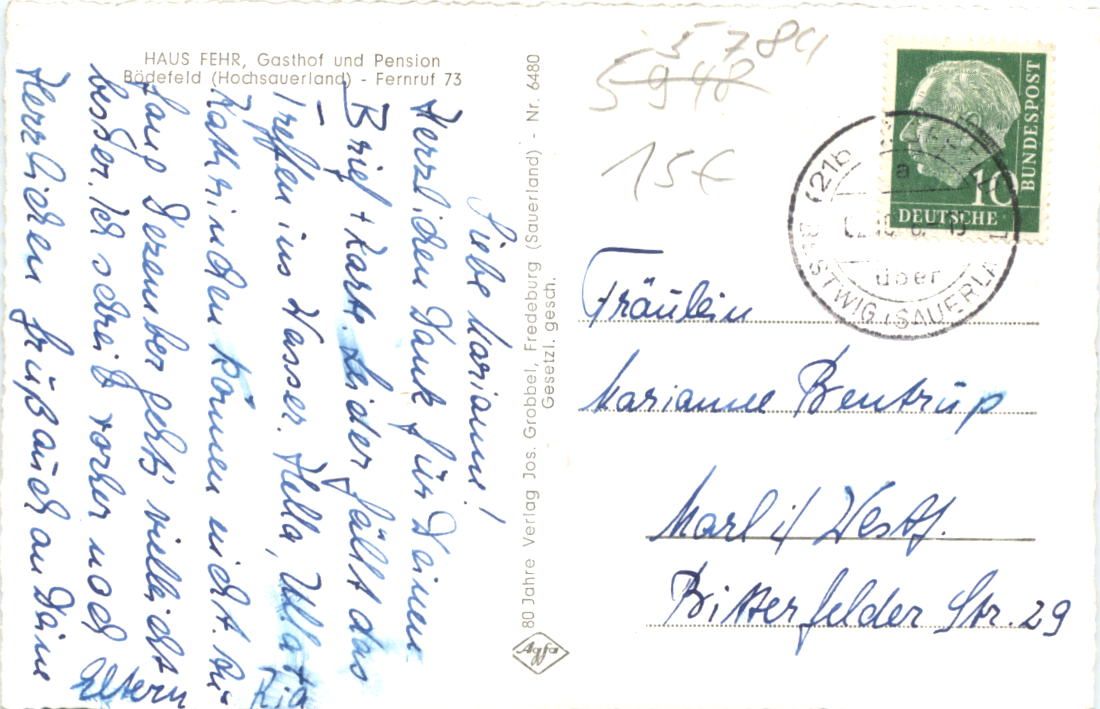 HAUS FEHR, Gasthof und Pension
Bödefeld (Hochsauerland) - Fernruf 73
Liebe Marianne!
Herzlichen Dank für Deinen
Brief + Karte. Leider fällt das
Treffen ins Wasser. Hella, Ulla +
Kathrinchen können nicht.
Dezember geht's vielleicht
besser. Ich schreib vorher noch
Herzlichen Gruß auch an Deine
Eltern
Ria
80 Jahre Verlag Jos. Grobbel, Fredeburg (Sauerland) - Nr. 6480
Gesetzl. gesch.
Agfa
5 784
5 948
15€
BUNDESPOST
10
DEUTSCHE
(21b
a
über
BESTWIG (SAUERL
Fräulein
Marianne Bentrup
Marl i/ Westf.
Bitterfelder Str. 29